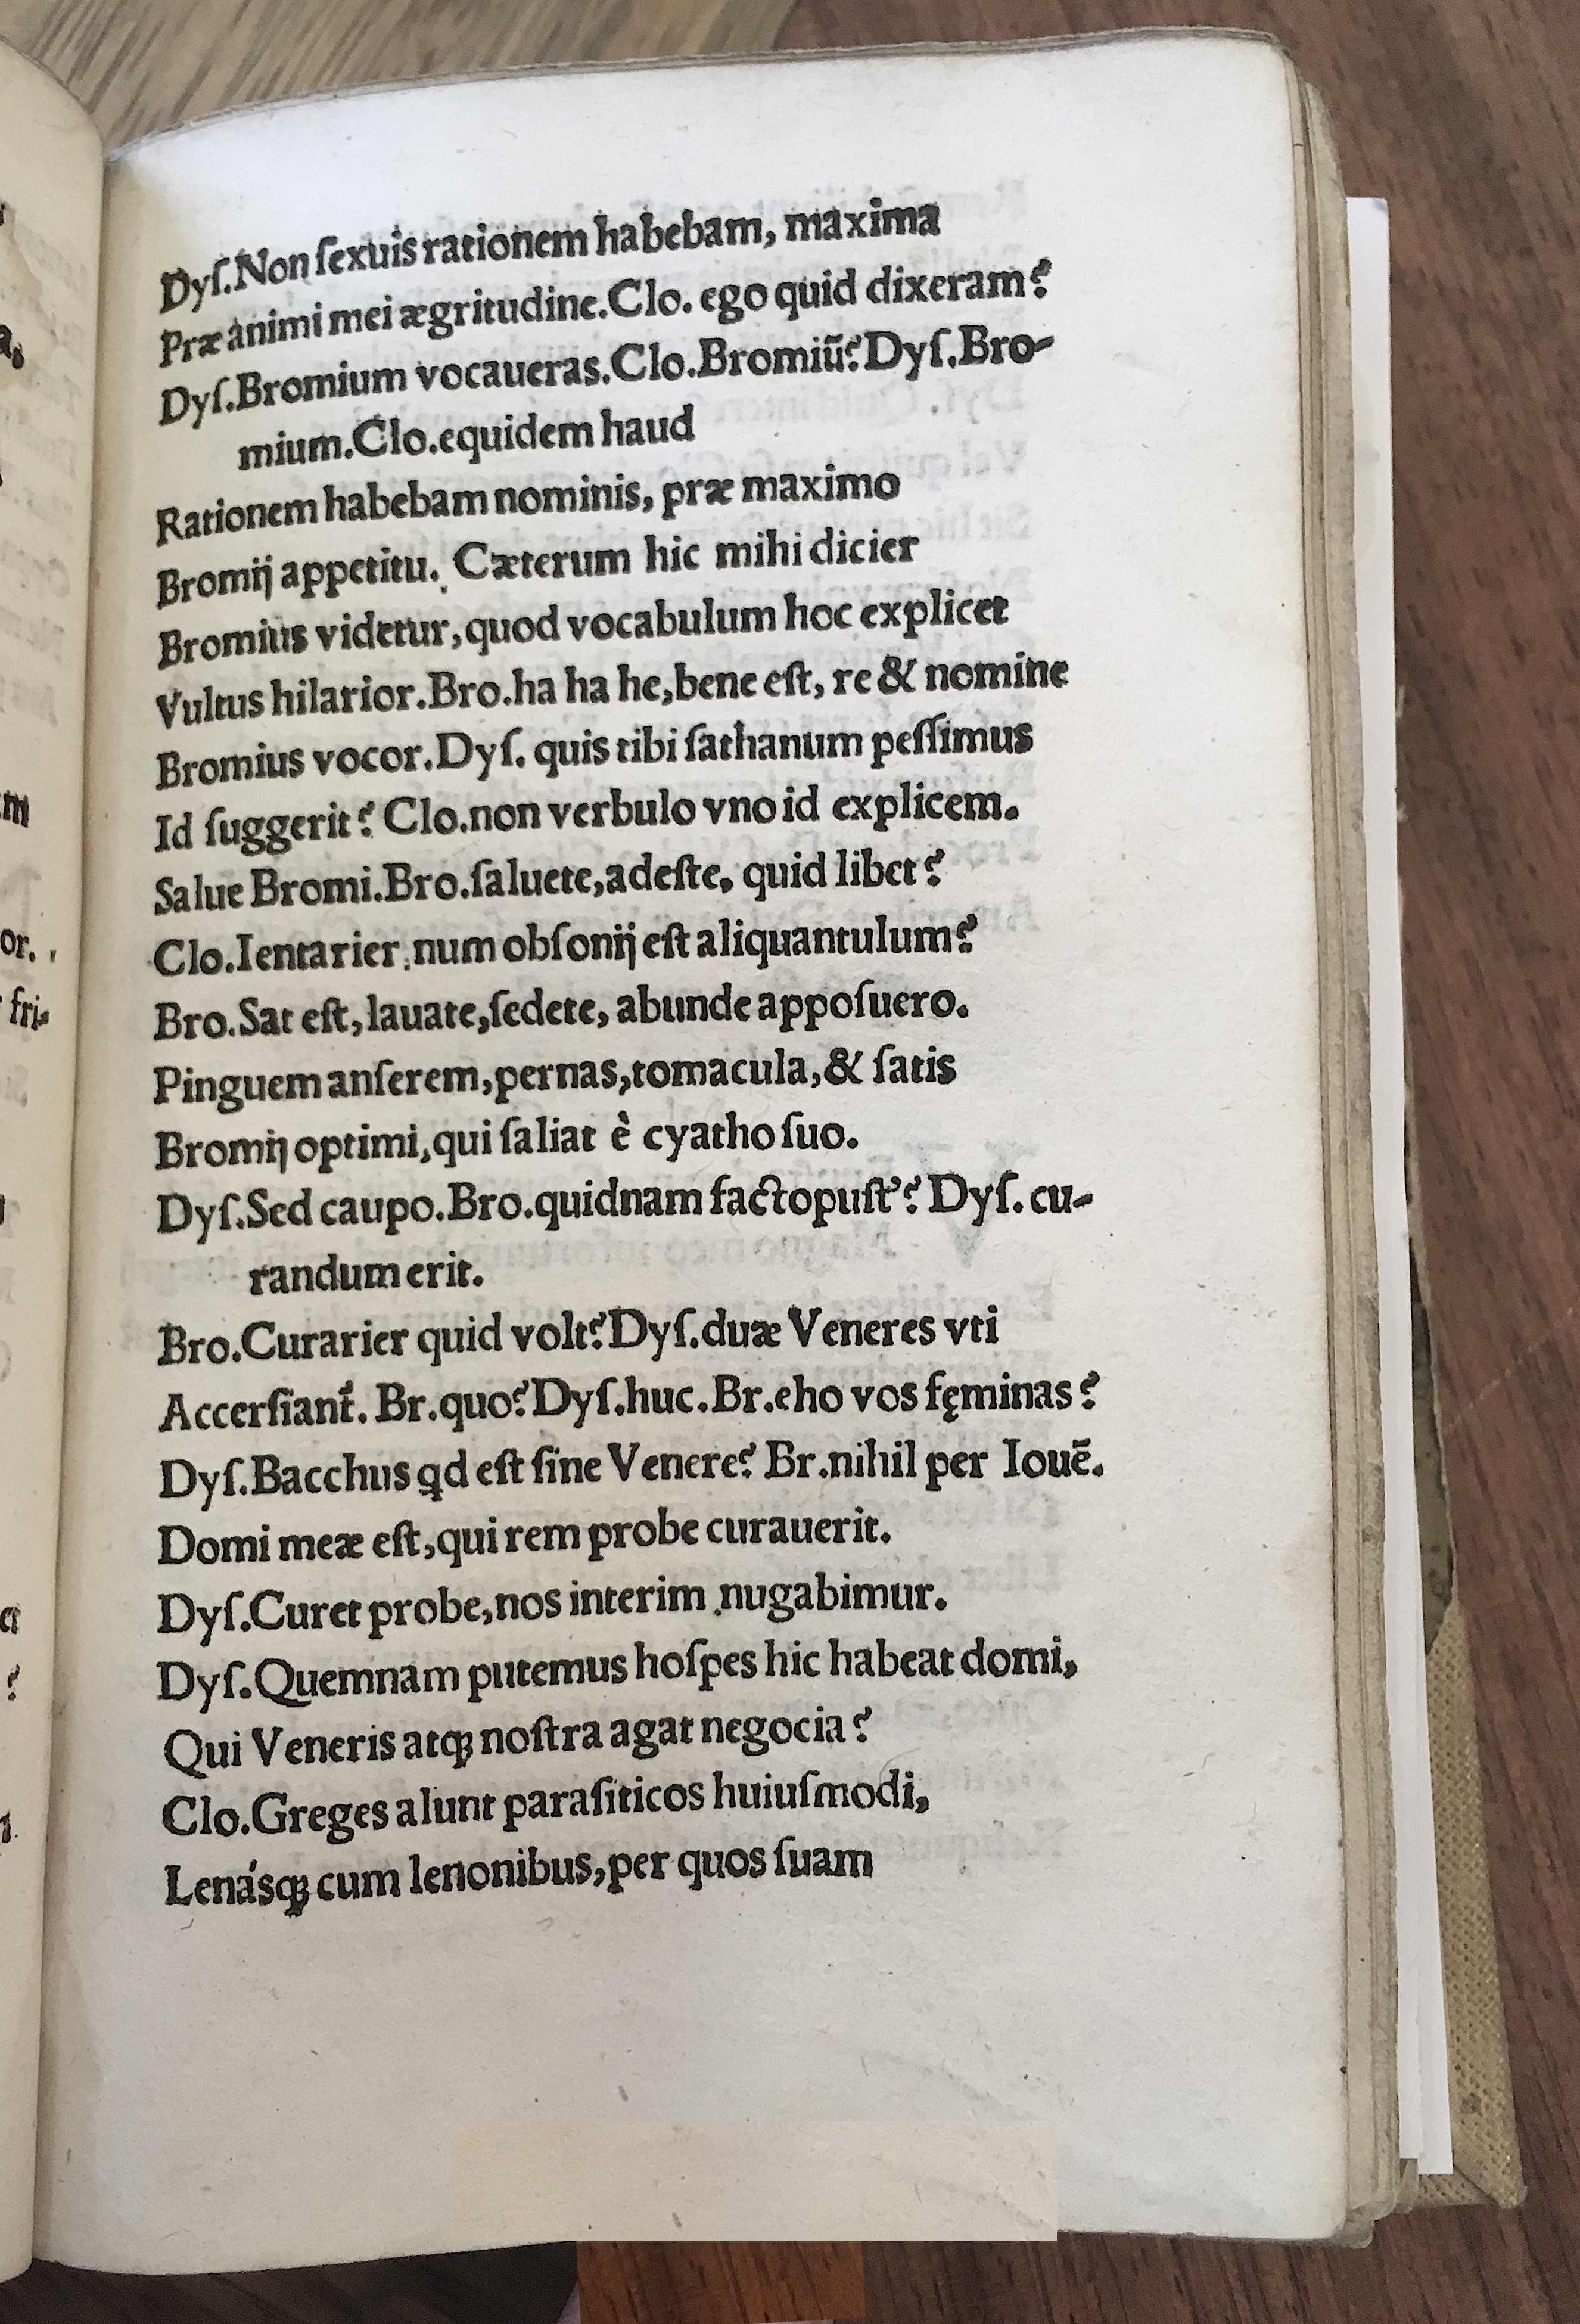 Dyſ.Non ſexuis rationem habebam, maxima
Præ animi mei ægritudine.Clo. ego quid dixeram?
Dyſ.Bromium vocaueras.Clo.Bromiū?Dyſ.Bro-
mium.Clo.equidem haud
Rationem habebam nominis, præ maximo
Bromij appetitu. Cæterum hic mihi dicier
Bromius videtur,quod vocabulum hoc explicet
Vultus hilarior.Bro.ha ha he,bene eſt, re & nomine
Bromius vocor.Dyſ. quis tibi ſathanum peſſimus
Id ſuggerit? Clo.non verbulo vno id explicem.
Salue Bromi.Bro.ſaluete,adeſte, quid libet?
Clo.Ientarier,num obſonij eſt aliquantulum?
Bro.Sat eſt,lauate,ſedete, abunde appoſuero.
Pinguem anſerem,pernas,tomacula,& ſatis
Bromij optimi,qui ſaliat è cyatho ſuo.
Dyſ.Sed caupo.Bro.quidnam factopuſt’? Dyſ. cu-
randum erit.
Bro.Curarier quid volt?Dyſ.duæ Veneres vti
Accerſiant᷑. Br.quo?Dyſ.huc.Br.eho vos fęminas?
Dyſ.Bacchus qd eſt ſine Venere? Br.nihil per Iouē.
Domi meæ eſt,qui rem probe curauerit.
Dyſ.Curet probe,nos interim nugabimur.
Dyſ.Quemnam putemus hoſpes hic habeat domi,
Qui Veneris atqꝫ noſtra agat negocia?
Clo.Greges alunt paraſiticos huiuſmodi,
Lenásqꝫ cum lenonibus,per quos ſuam